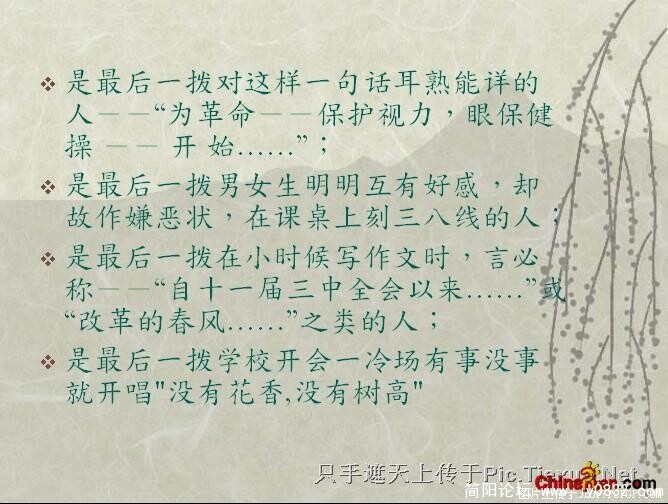 是最后一拨对这样一句话耳熟能详的
人——“为革命——保护视力，眼保健
操 —— 开 始……”；
是最后一拨男女生明明互有好感，却
故作嫌恶状，在课桌上刻三八线的人；
是最后一拨在小时候写作文时，言必
称——“自十一届三中全会以来……”或
“改革的春风……”之类的人；
是最后一拨学校开会一冷场有事没事
就开唱"没有花香,没有树高"
只手遮天上传于Pic.Tiexue.Net
简阳论坛